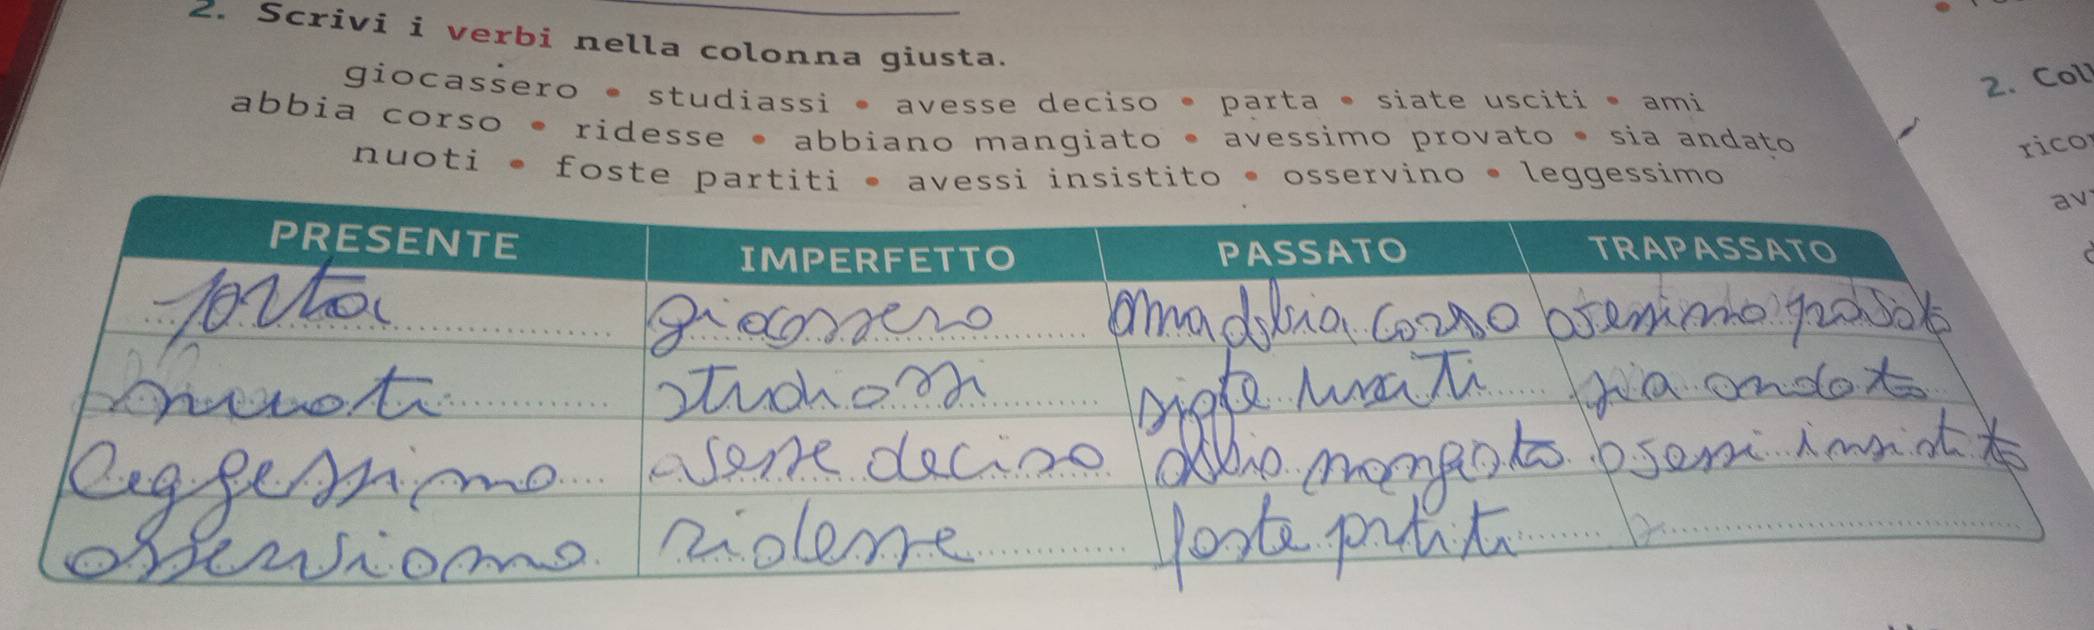 2. Scrivi i verbi nella colonna giusta.
giocassero • studiassi • avesse deciso • parta • siate usciti • ami
abbia corso • ridesse • abbiano mangiato • avessimo provato • sia andato
nuoti • foste partiti • avessi insistito • osservino • leggessimo
PRESENTE IMPERFETTO PASSATO TRAPASSATO
parta giocassero abbia corso
nuoti studiassi siate usciti sia andato
leggessimo avesse deciso insistito
ridesse foste partiti
2. Coll
rico
av